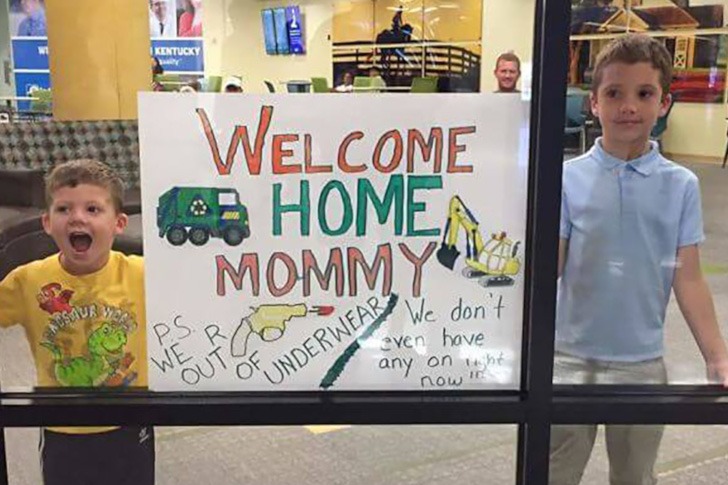 KENTUCKY
WELCOME
HOME
MOMMY
P.S.
WE R
OUT OF UNDERWEAR
We don't
even have
any on right
now!!!
DINOSAUR WORLD